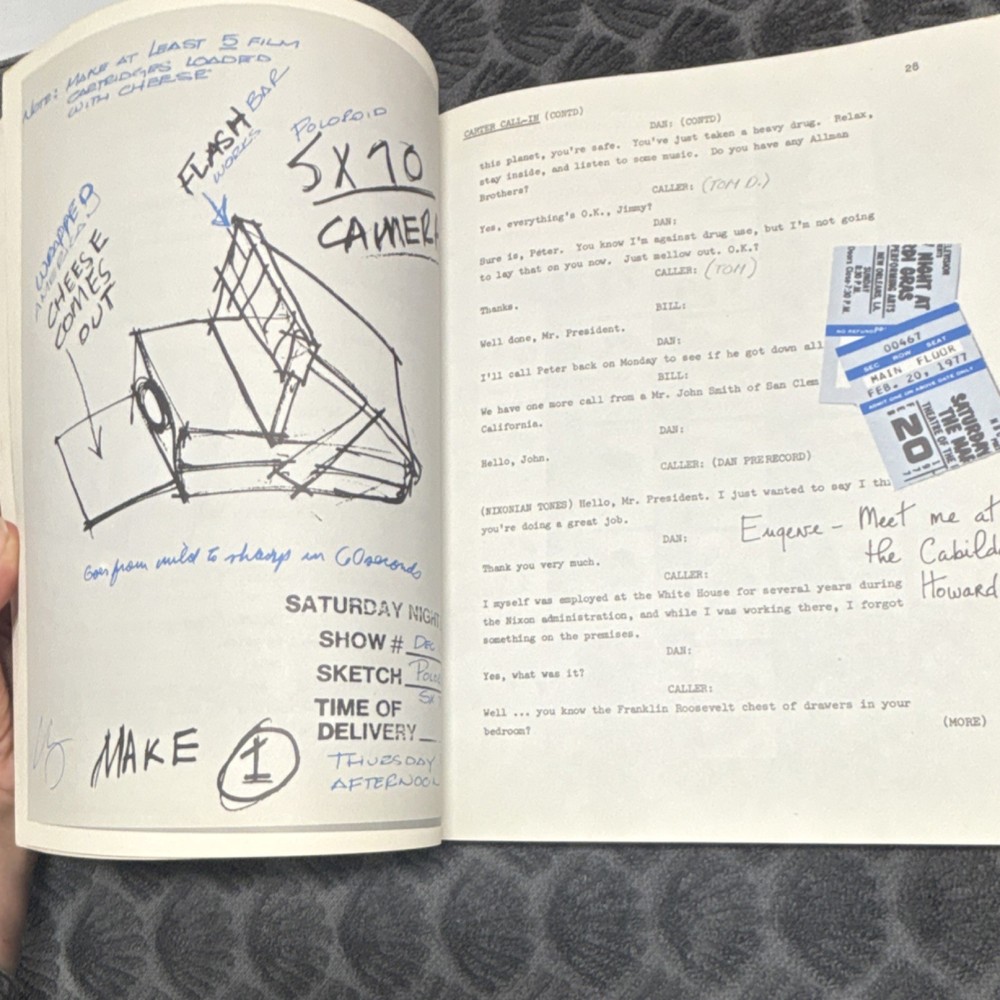 NOTE: MAKE AT LEAST 5 FILM
CARTRIDGES LOADED
WITH CHEESE
FLASH BAR
WORKS
POLOROID
5X70
CAMERA
WRAPPED
AMERICAN
CHEESE
COMES
OUT
Goes from mild to sharp in 60 seconds
SATURDAY NIGHT
SHOW # DEC
SKETCH
TIME OF
DELIVERY
THURSDAY
AFTERNOON
MAKE 1
28
CARTER CALL-IN (CONTD)
DAN: (CONTD)
this planet, you're safe. You've just taken a heavy drug. Relax,
stay inside, and listen to some music. Do you have any Allman
Brothers?
CALLER: (TOM D.)
Yes, everything's O.K., Jimmy?
DAN:
Sure is, Peter. You know I'm against drug use, but I'm not going
to lay that on you now. Just mellow out. O.K.?
CALLER: (TOM)
Thanks.
BILL:
Well done, Mr. President.
DAN:
I'll call Peter back on Monday to see if he got down all
BILL:
We have one more call from a Mr. John Smith of San Clem
California.
DAN:
Hello, John.
CALLER: (DAN PRERECORD)
(NIXONIAN TONES) Hello, Mr. President. I just wanted to say I thi
you're doing a great job.
DAN:
Thank you very much.
CALLER:
I myself was employed at the White House for several years during
the Nixon administration, and while I was working there, I forgot
something on the premises.
DAN:
Yes, what was it?
CALLER:
Well ... you know the Franklin Roosevelt chest of drawers in your
bedroom?
(MORE)
NIGHT AT
RDI GRAS
PERFORMING ARTS
NEW ORLEANS, LA.
SUNDAY
8:30 P.M.
Doors Close 7:30 P.M.
00467
SEC ROW SEAT
MAIN FLOOR
FEB. 20, 1977
ADMIT ONE ON ABOVE DATE ONLY
SATURDAY
THE MAR
THEATRE OF THE
FEB
20
Eugene - Meet me at
the Cabild
Howard